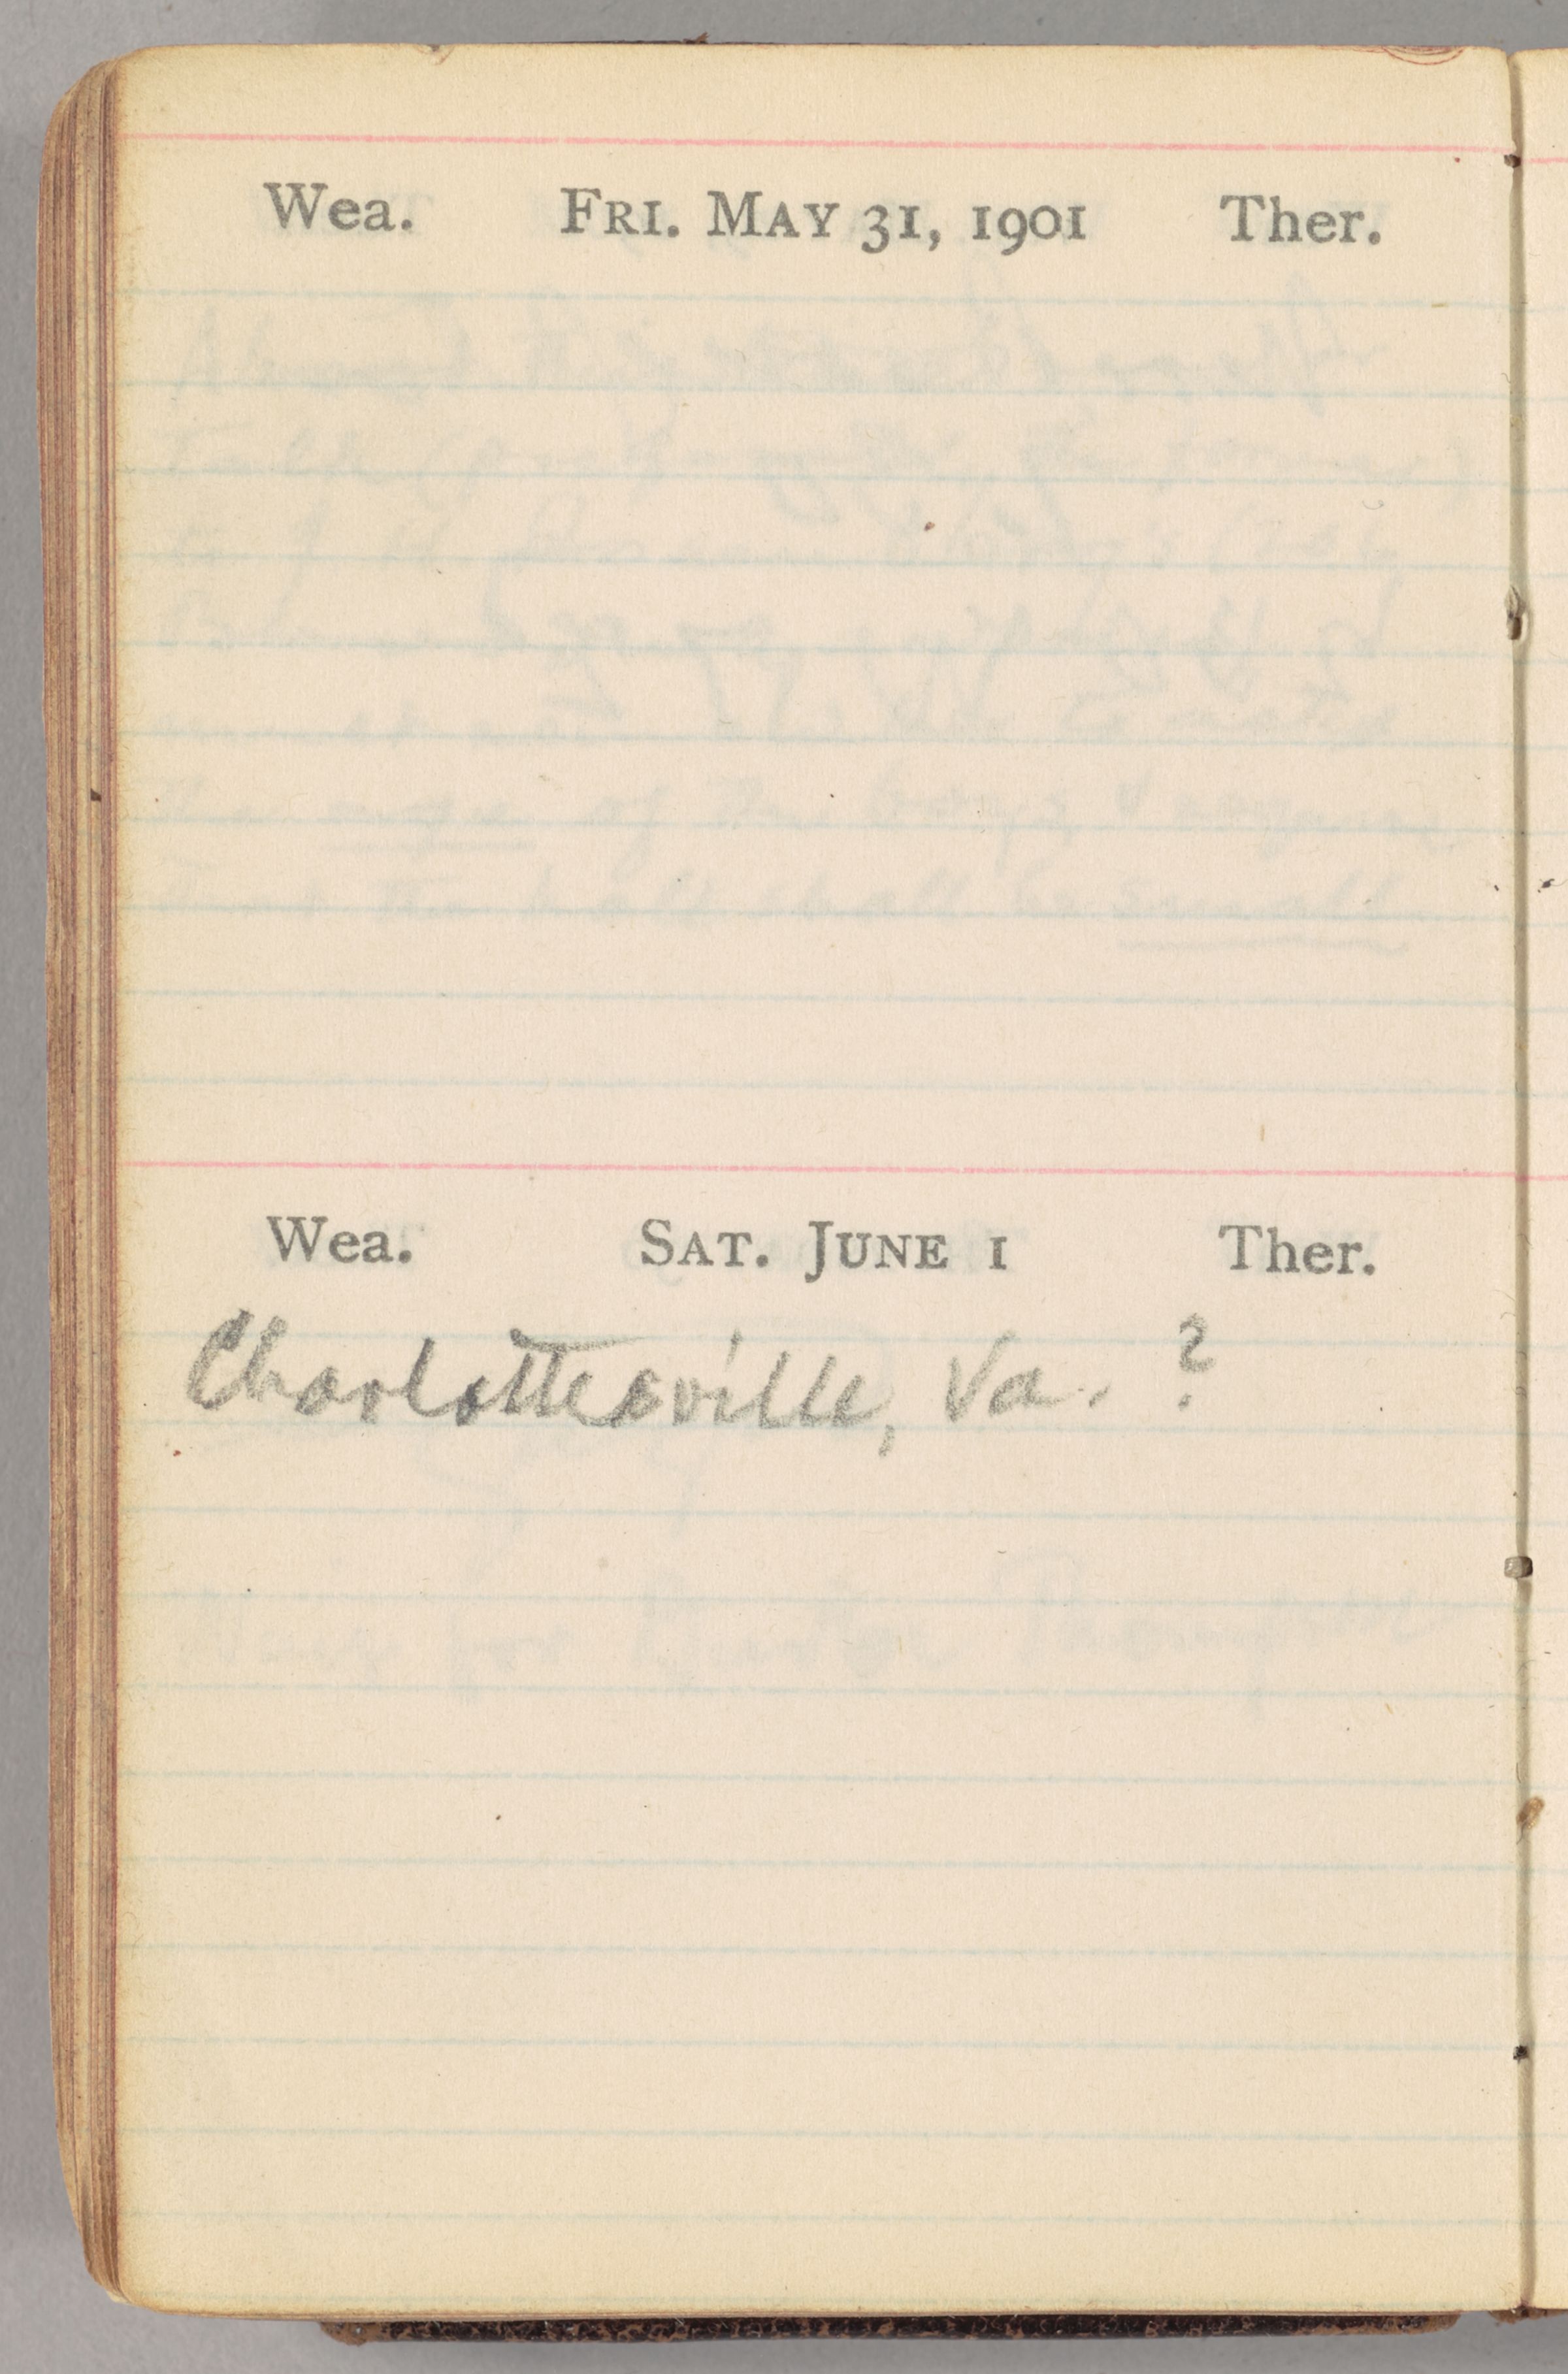 Wea. FRI. MAY 31, 1901 Ther.
Wea. SAT. JUNE 1 Ther.
Charlottesville, Va. ?